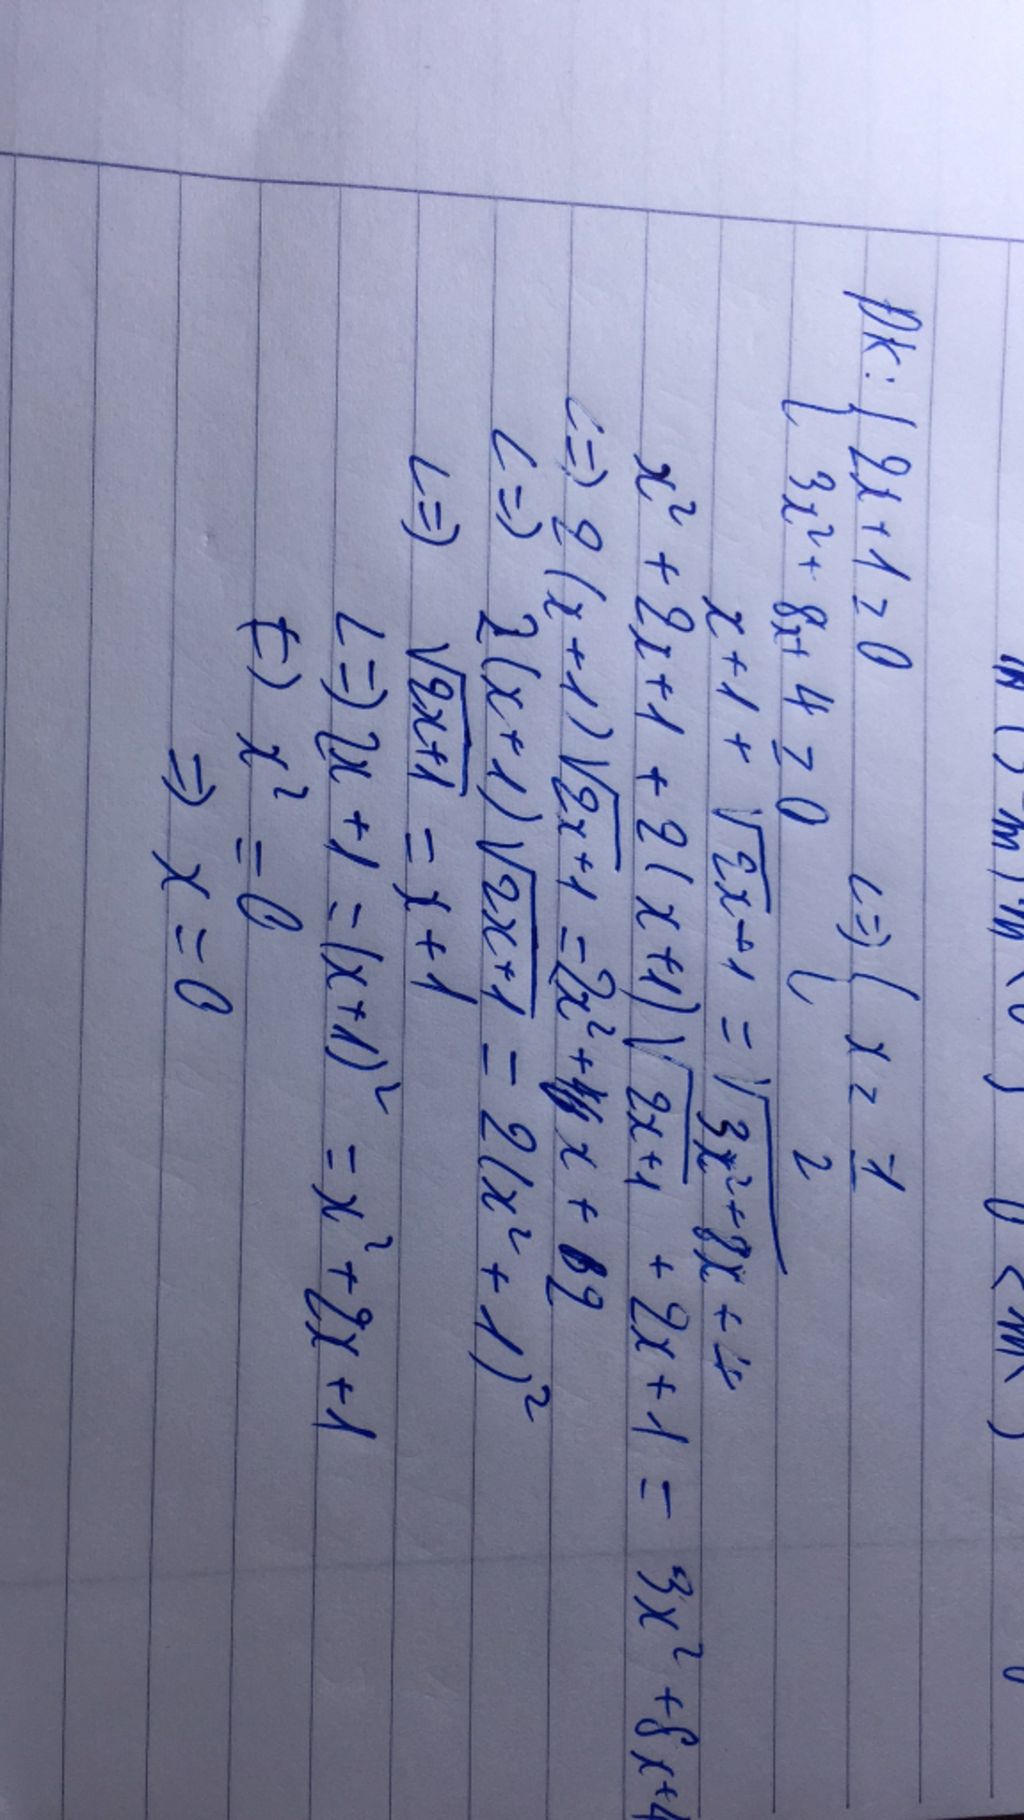 ĐK: { 2x + 1 ≥ 0 <=> { x ≥ -1/2
{ 3x² + 8x + 4 ≥ 0
x + 1 + √2x + 1 = √3x² + 8x + 4
x² + 2x + 1 + 2(x + 1)√2x + 1 + 2x + 1 = 3x² + 8x + 4
<=> 2(x + 1)√2x + 1 = 2x² + 4x + 2
<=> 2(x + 1)√2x + 1 = 2(x² + 1)²
<=> √2x + 1 = x + 1
<=> 2x + 1 = (x + 1)² = x² + 2x + 1
<=> x² = 0
=> x = 0